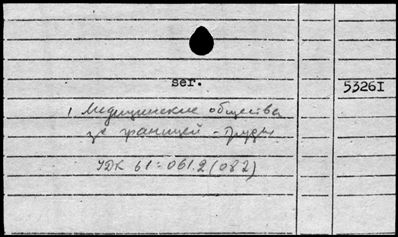 ser.
5326I
1 Медицинские общества
за границей - Труды
УДК 61:061.2(082)